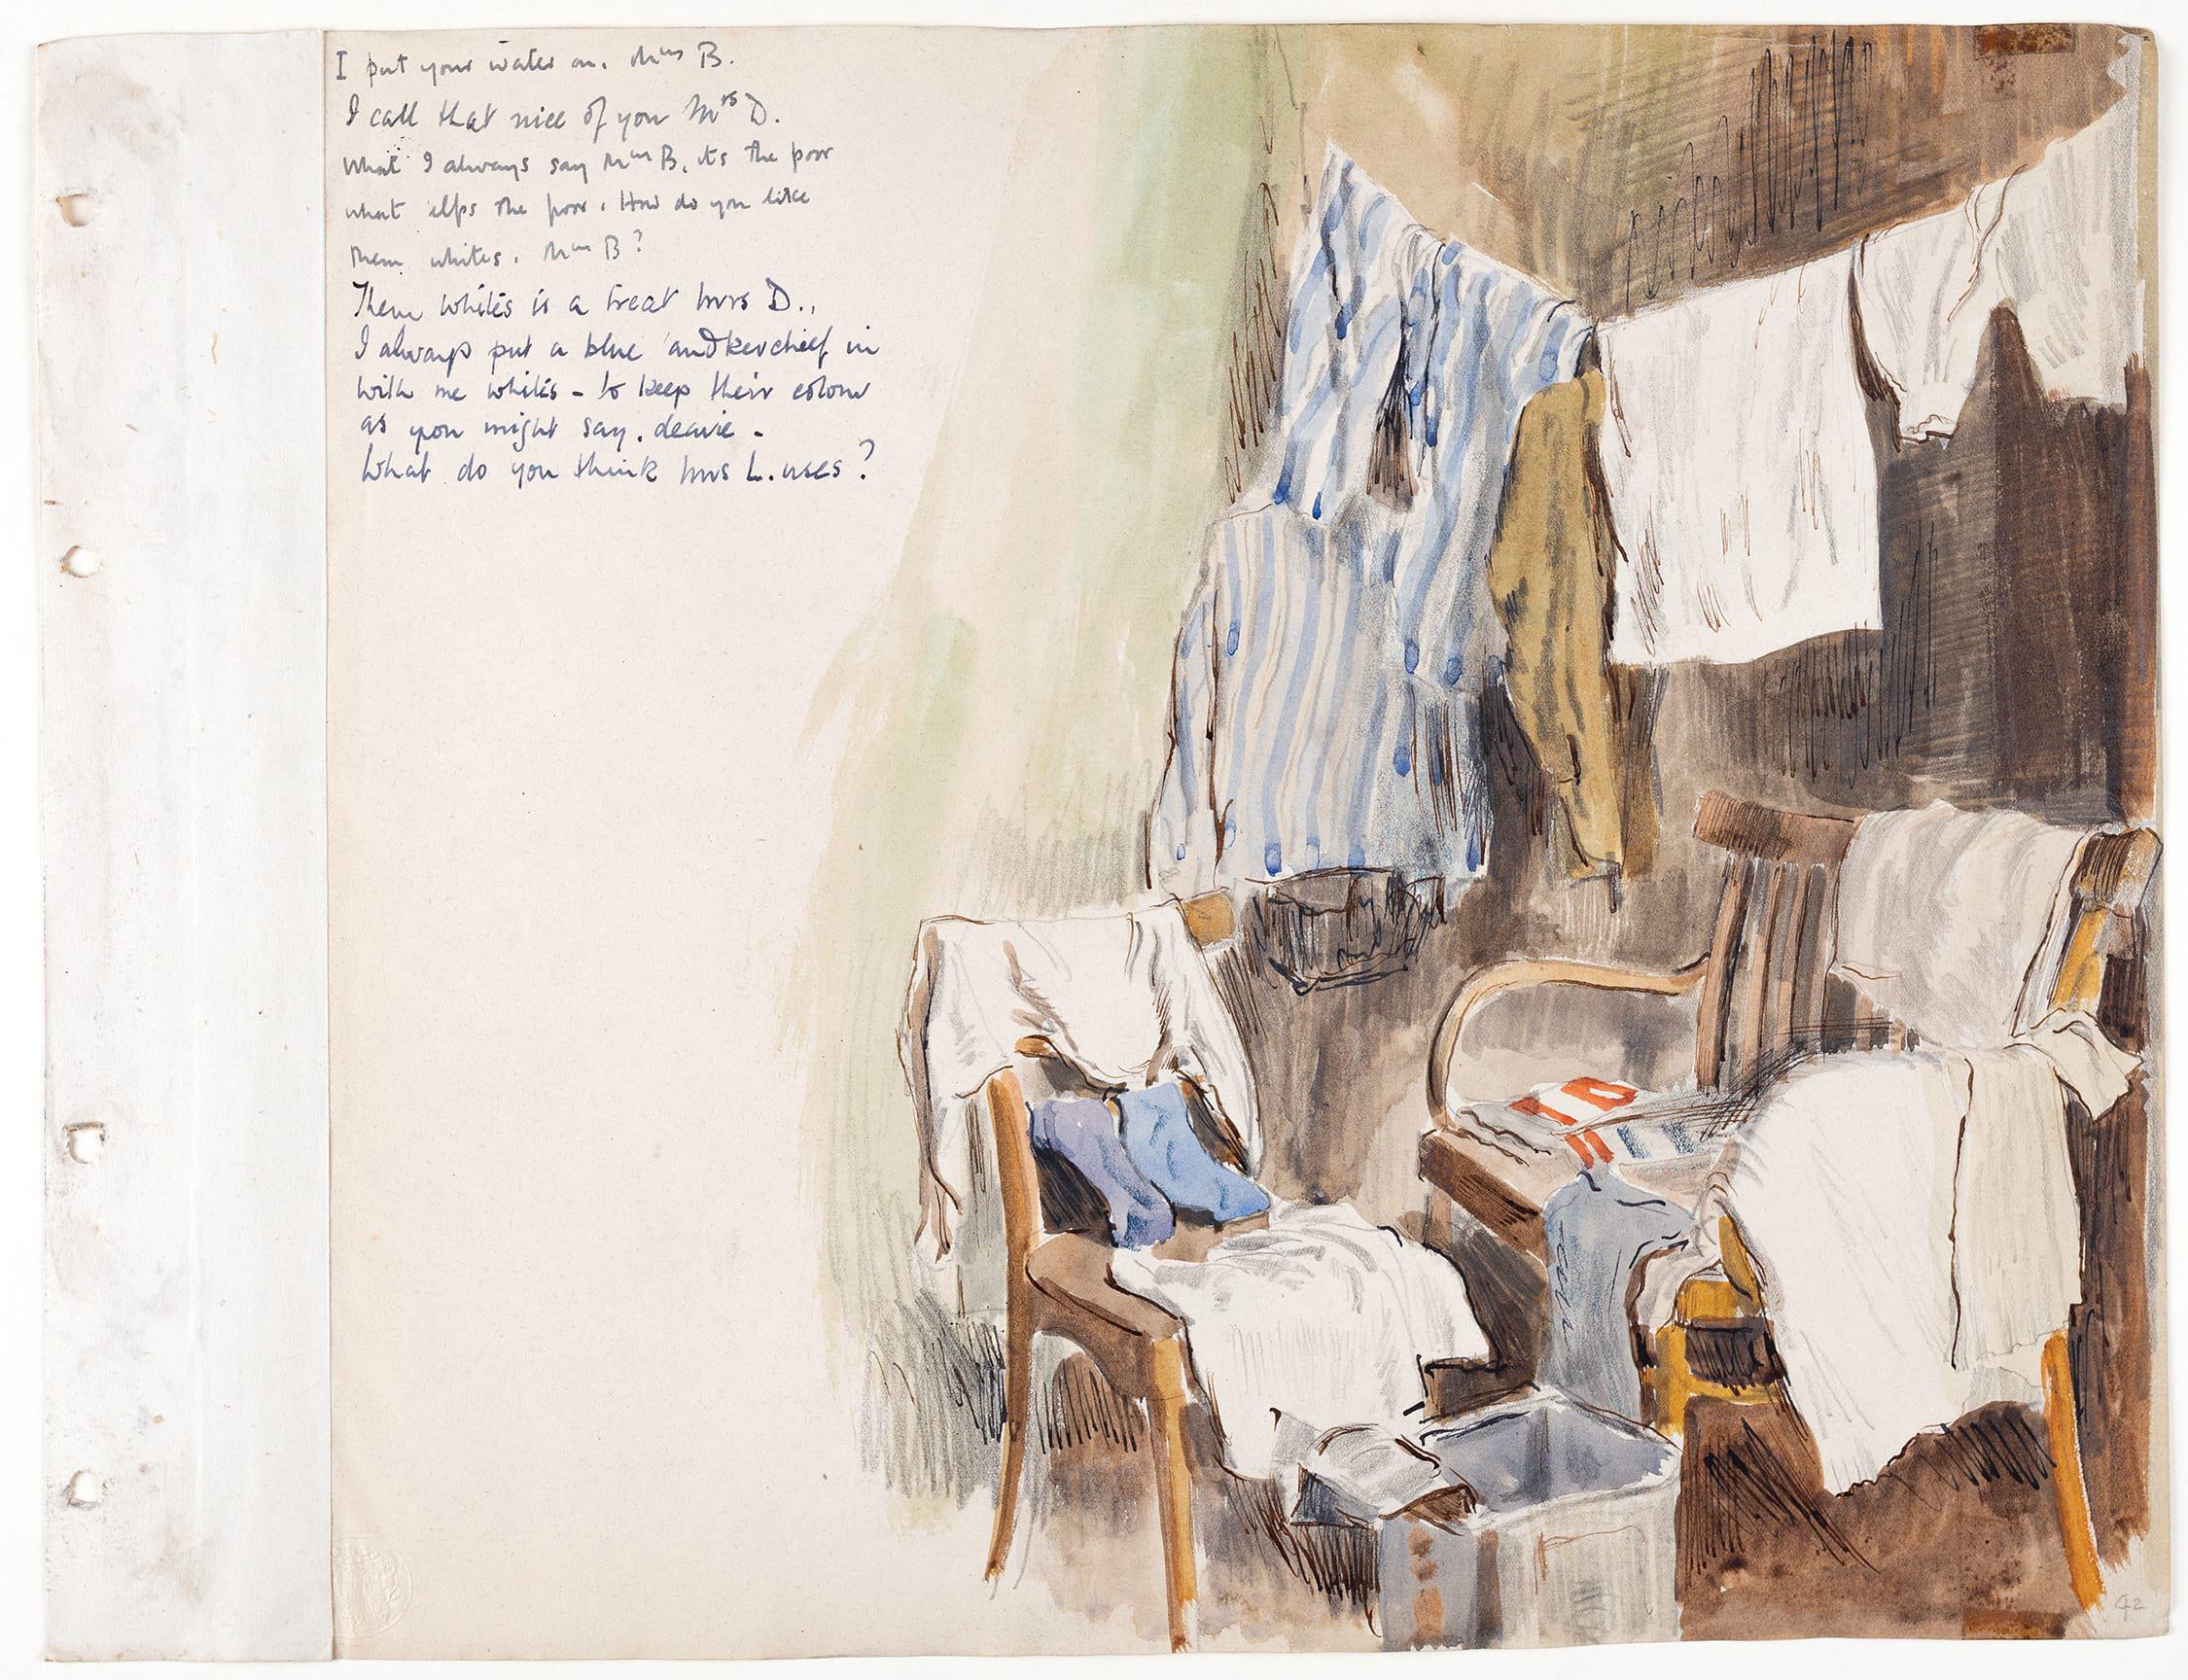 I put your water on. Mrs B.
I call that nice of you Mrs D.
What I always say Mrs B, its the poor
what 'elps the poor. How do you like
them whites. Mrs B?
Them whites is a treat Mrs D.,
I always put a blue 'andkerchief in
with me whites - to keep their colour
as you might say. dearie -
What do you think Mrs L. uses?
42